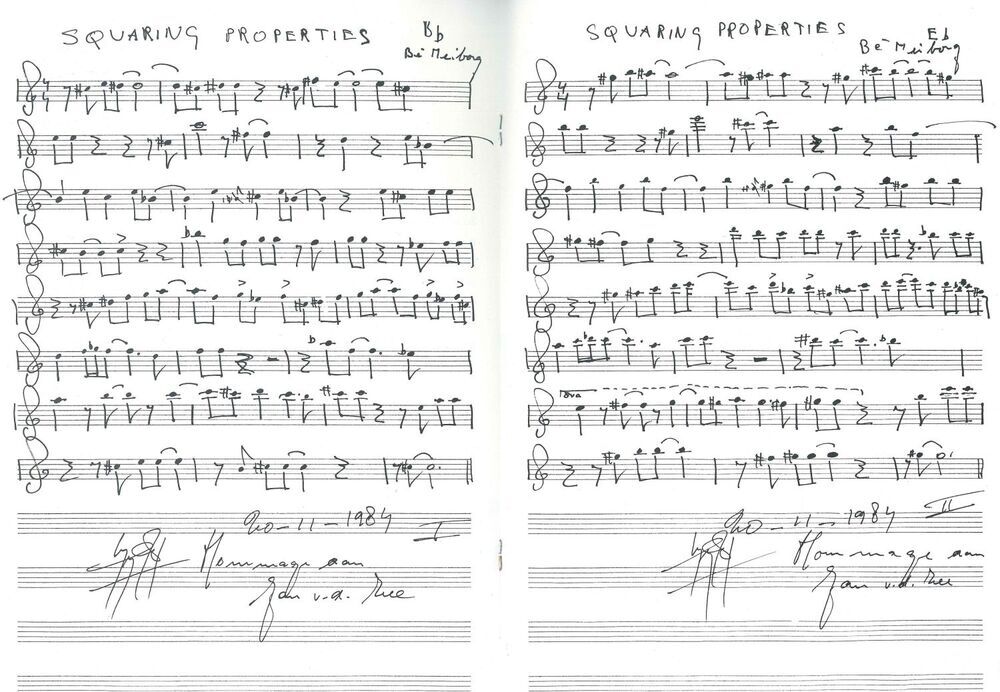 SQUARING PROPERTIES
Bb
Bé Meiborg
20-11-1984
I
Hommage aan
Jan v.d.
SQUARING PROPERTIES
Eb
Bé Meiborg
8va
20-11-1984
II
Hommage aan
Jan v.d.